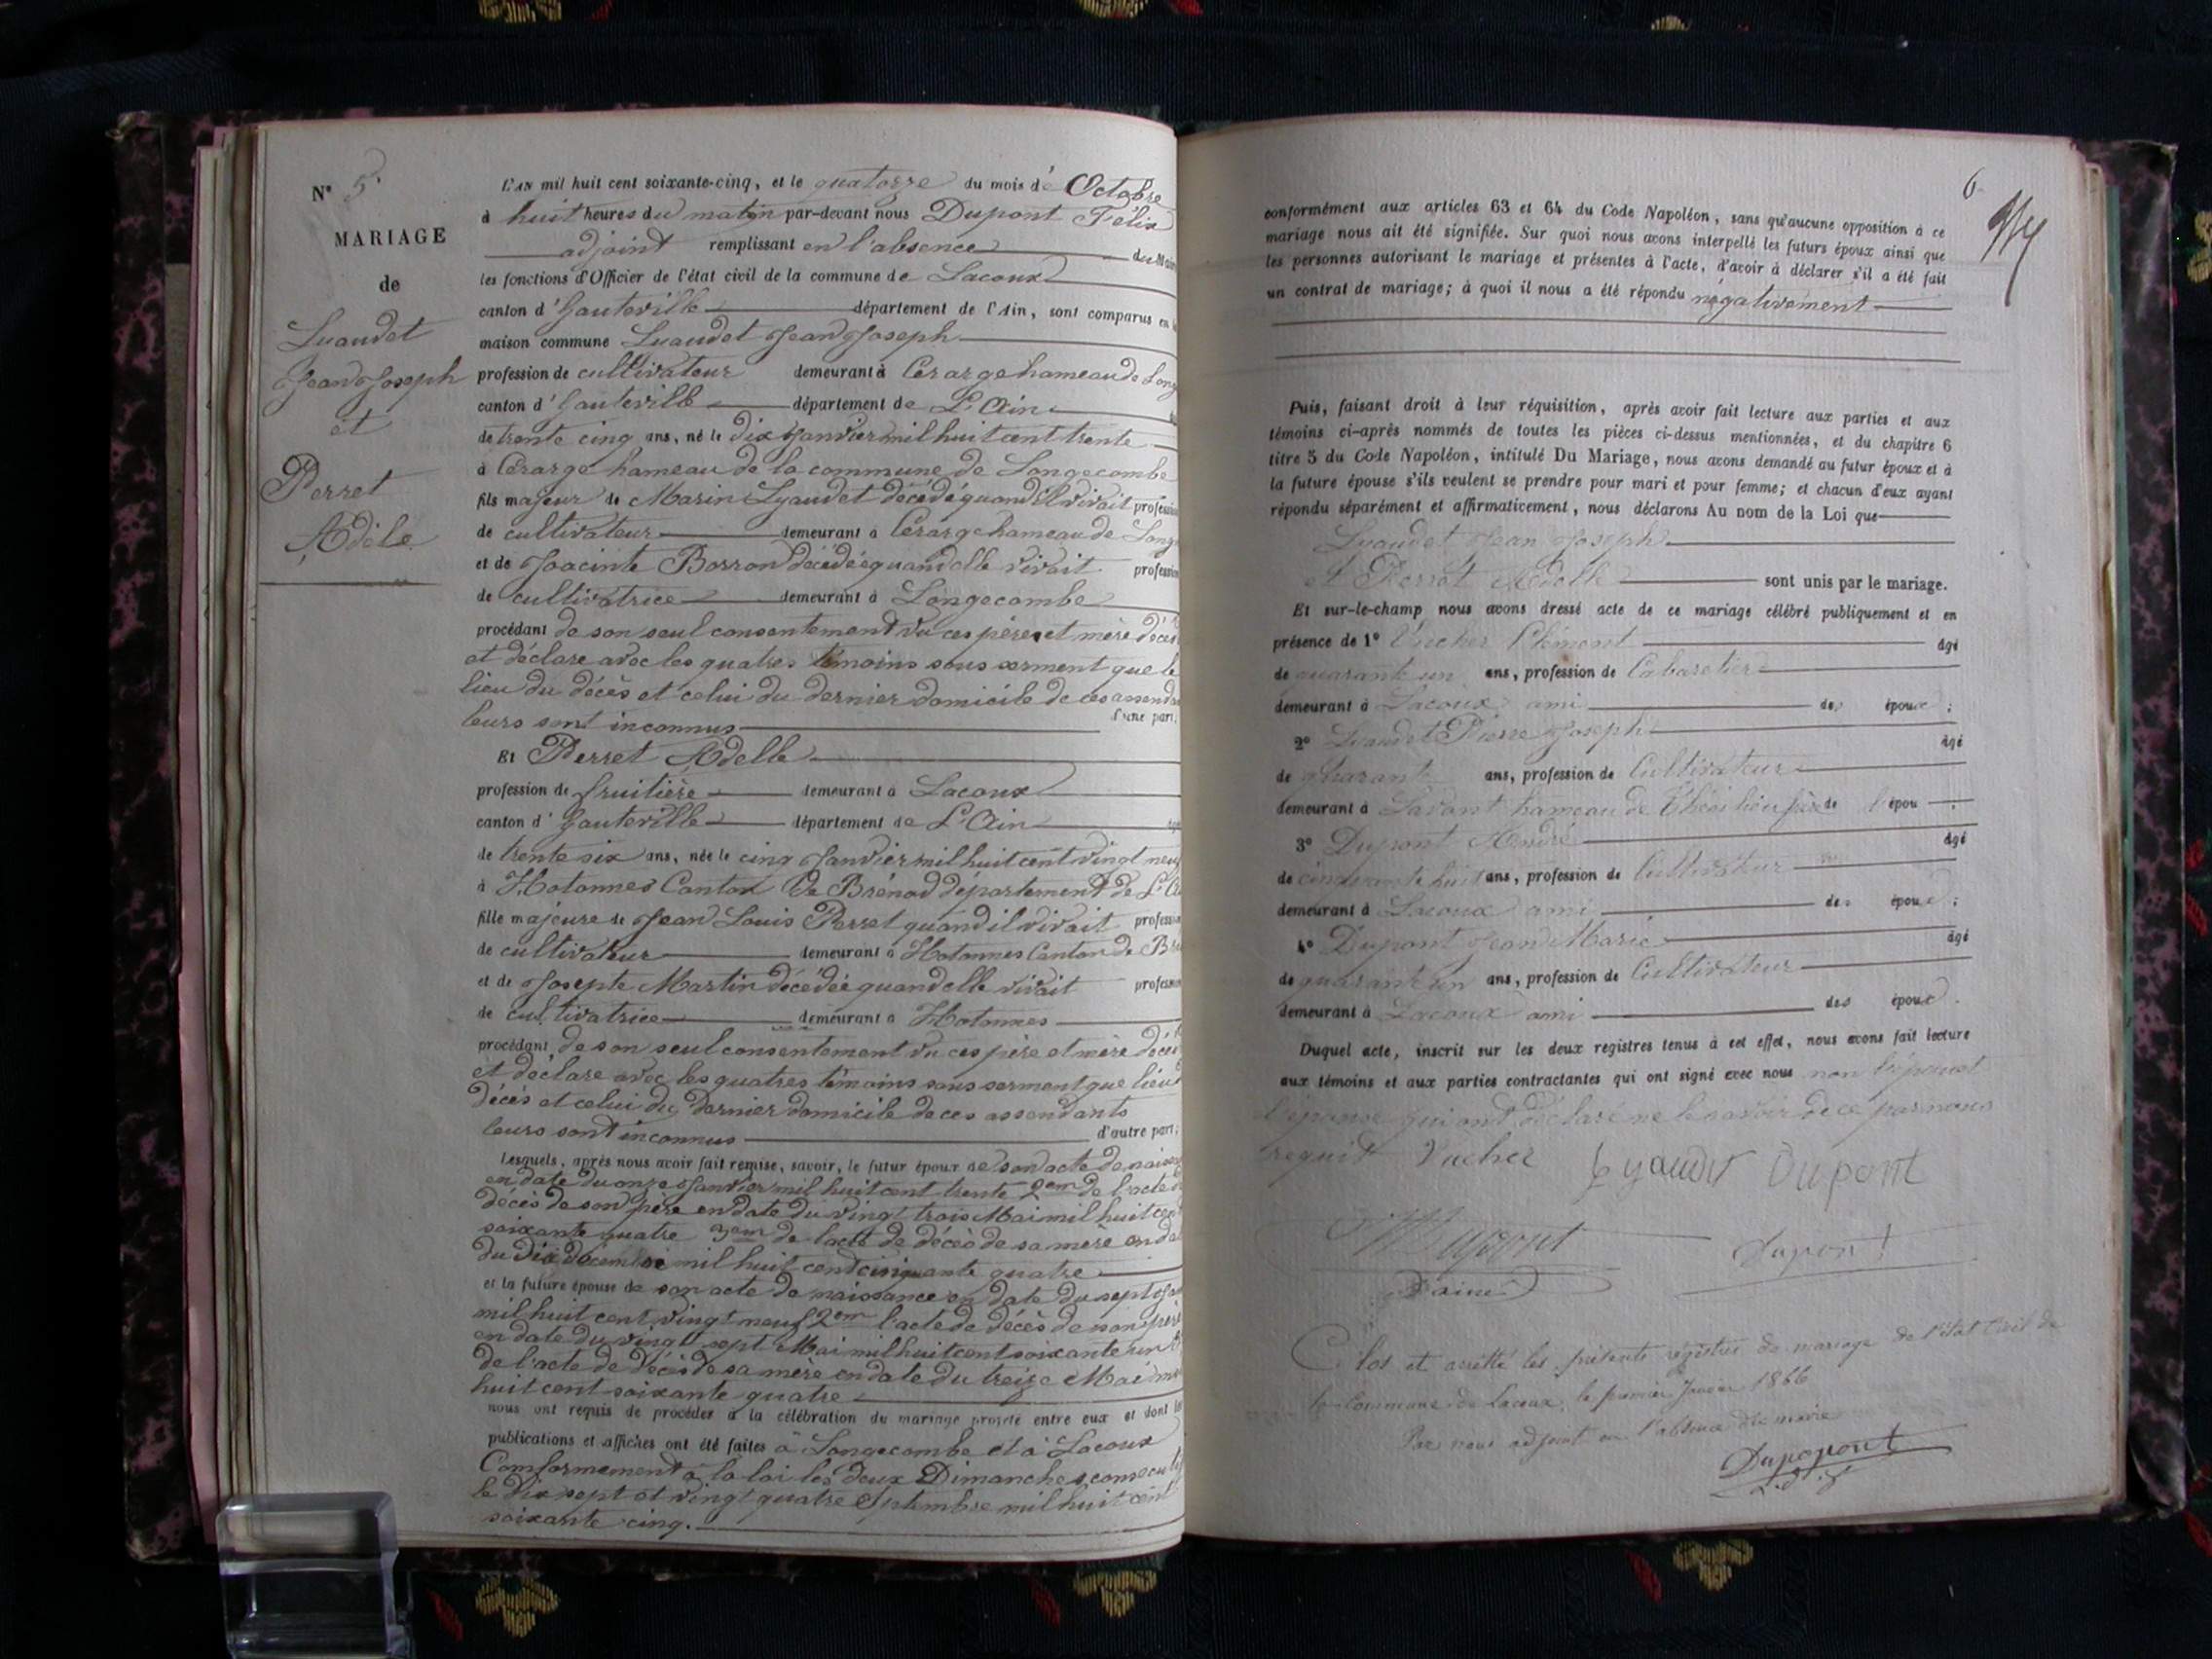 N° 5.
MARIAGE
de
Lyaudet
Jean Joseph
et
Perret
Adèle
L'AN mil huit cent soixante-cinq, et le quatorze du mois de Octobre
à huit heures du matin par-devant nous Dupont Félix
adjoint remplissant en l'absence du Maire
les fonctions d'Officier de l'état civil de la commune de Lacoux
canton d'hauteville département de l'Ain, sont comparus en la
maison commune Lyaudet Jean Joseph
profession de cultivateur demeurant à Cérarge hameau de Long
canton d'hauteville département de L'Ain
de trente cinq ans, né le dix Janvier mil huit cent trente
à Cérarge hameau de la commune de Longecombe
fils majeur de Marin Lyaudet décédé quand il vivait profession
de cultivateur demeurant à Cérarge hameau de Long
et de Joacinte Borron décédée quand elle vivait profession
de cultivatrice demeurant à Longecombe
procédant de son seul consentement vu ces père et mère décéd
et déclare avec les quatres témoins sous serment que le
lieu du décès et celui du dernier domicile de ces assendan
leurs sont inconnus d'une part;
Et Perret Adelle
profession de fruitière demeurant à Lacoux
canton d'hauteville département de L'Ain
de trente six ans, née le cinq Janvier mil huit cent vingt neuf
à Hotonnes Canton de Brénod département de L'A
fille majeure de Jean Louis Perret quand il vivait profession
de cultivateur demeurant à Hotonnes Canton de Br
et de Josepte Martin décédée quand elle vivait profession
de cultivatrice demeurant à Hotonnes
procédant de son seul consentement vu ces père et mère décéd
et déclare avec les quatres témoins sous serment que lieu
décès et celui du dernier domicile de ces assendants
leurs sont inconnus d'autre part;
Lesquels, après nous avoir fait remise, savoir, le futur époux de son acte de naiss
en date du onze Janvier mil huit cent trente 2em de l'acte
décès de son père en date du vingt trois Mai mil huit cent
soixante quatre 3em de l'acte de décès de sa mère en da
du Dix Décembre mil huit cent cinquante quatre
et la future épouse de son acte de naissance en date du sept Jan
mil huit cent vingt neuf 2em l'acte de décès de son père
en date du vingt sept Mai mil huit cent soixante un
de l'acte de Décès de sa mère en date du treize Mai m
huit cent soixante quatre
nous ont requis de procéder à la célébration du mariage projeté entre eux et dont les
publications et affiches ont été faites à Longecombe et à Lacoux
Conformement à la loi les deux Dimanches consecutif
le Dix sept et vingt quatre Septembre mil huit cent
soixante cinq.
6
conformément aux articles 63 et 64 du Code Napoléon, sans qu'aucune opposition à ce
mariage nous ait été signifiée. Sur quoi nous avons interpellé les futurs époux ainsi que
les personnes autorisant le mariage et présentes à l'acte, d'avoir à déclarer s'il a été fait
un contrat de mariage; à quoi il nous a été répondu négativement
Puis, faisant droit à leur réquisition, après avoir fait lecture aux parties et aux
témoins ci-après nommés de toutes les pièces ci-dessus mentionnées, et du chapitre 6
titre 5 du Code Napoléon, intitulé Du Mariage, nous avons demandé au futur époux et à
la future épouse s'ils veulent se prendre pour mari et pour femme; et chacun d'eux ayant
répondu séparément et affirmativement, nous déclarons Au nom de la Loi que
Lyaudet Jean Joseph
et Perret Adelle sont unis par le mariage.
Et sur-le-champ nous avons dressé acte de ce mariage célébré publiquement et en
présence de 1° Vucher Clément âgé
de quarante un ans, profession de Cabaretier
demeurant à Lacoux ami des époux;
2° Lyaudet Pierre Joseph âgé
de quarante ans, profession de Cultivateur
demeurant à Lavant hameau de Thézilieu frère de l'épou;
3° Dupont André âgé
de cinquante huit ans, profession de Cultivateur
demeurant à Lacoux ami des époux;
4° Dupont Jean Marie âgé
de quarante un ans, profession de Cultivateur
demeurant à Lacoux ami des époux.
Duquel acte, inscrit sur les deux registres tenus à cet effet, nous avons fait lecture
aux témoins et aux parties contractantes qui ont signé avec nous non l'époux et
l'épouse qui ont déclaré ne le savoir de ce par nous
requit Vucher Lyaudet Dupont
Dupont
Dupont
Clos et arrêtté les présents registres de mariage de l'état Civil de
la Commune de Lacoux, le premier Janvier 1866
Par nous adjoint en l'absence du maire
Dupopont